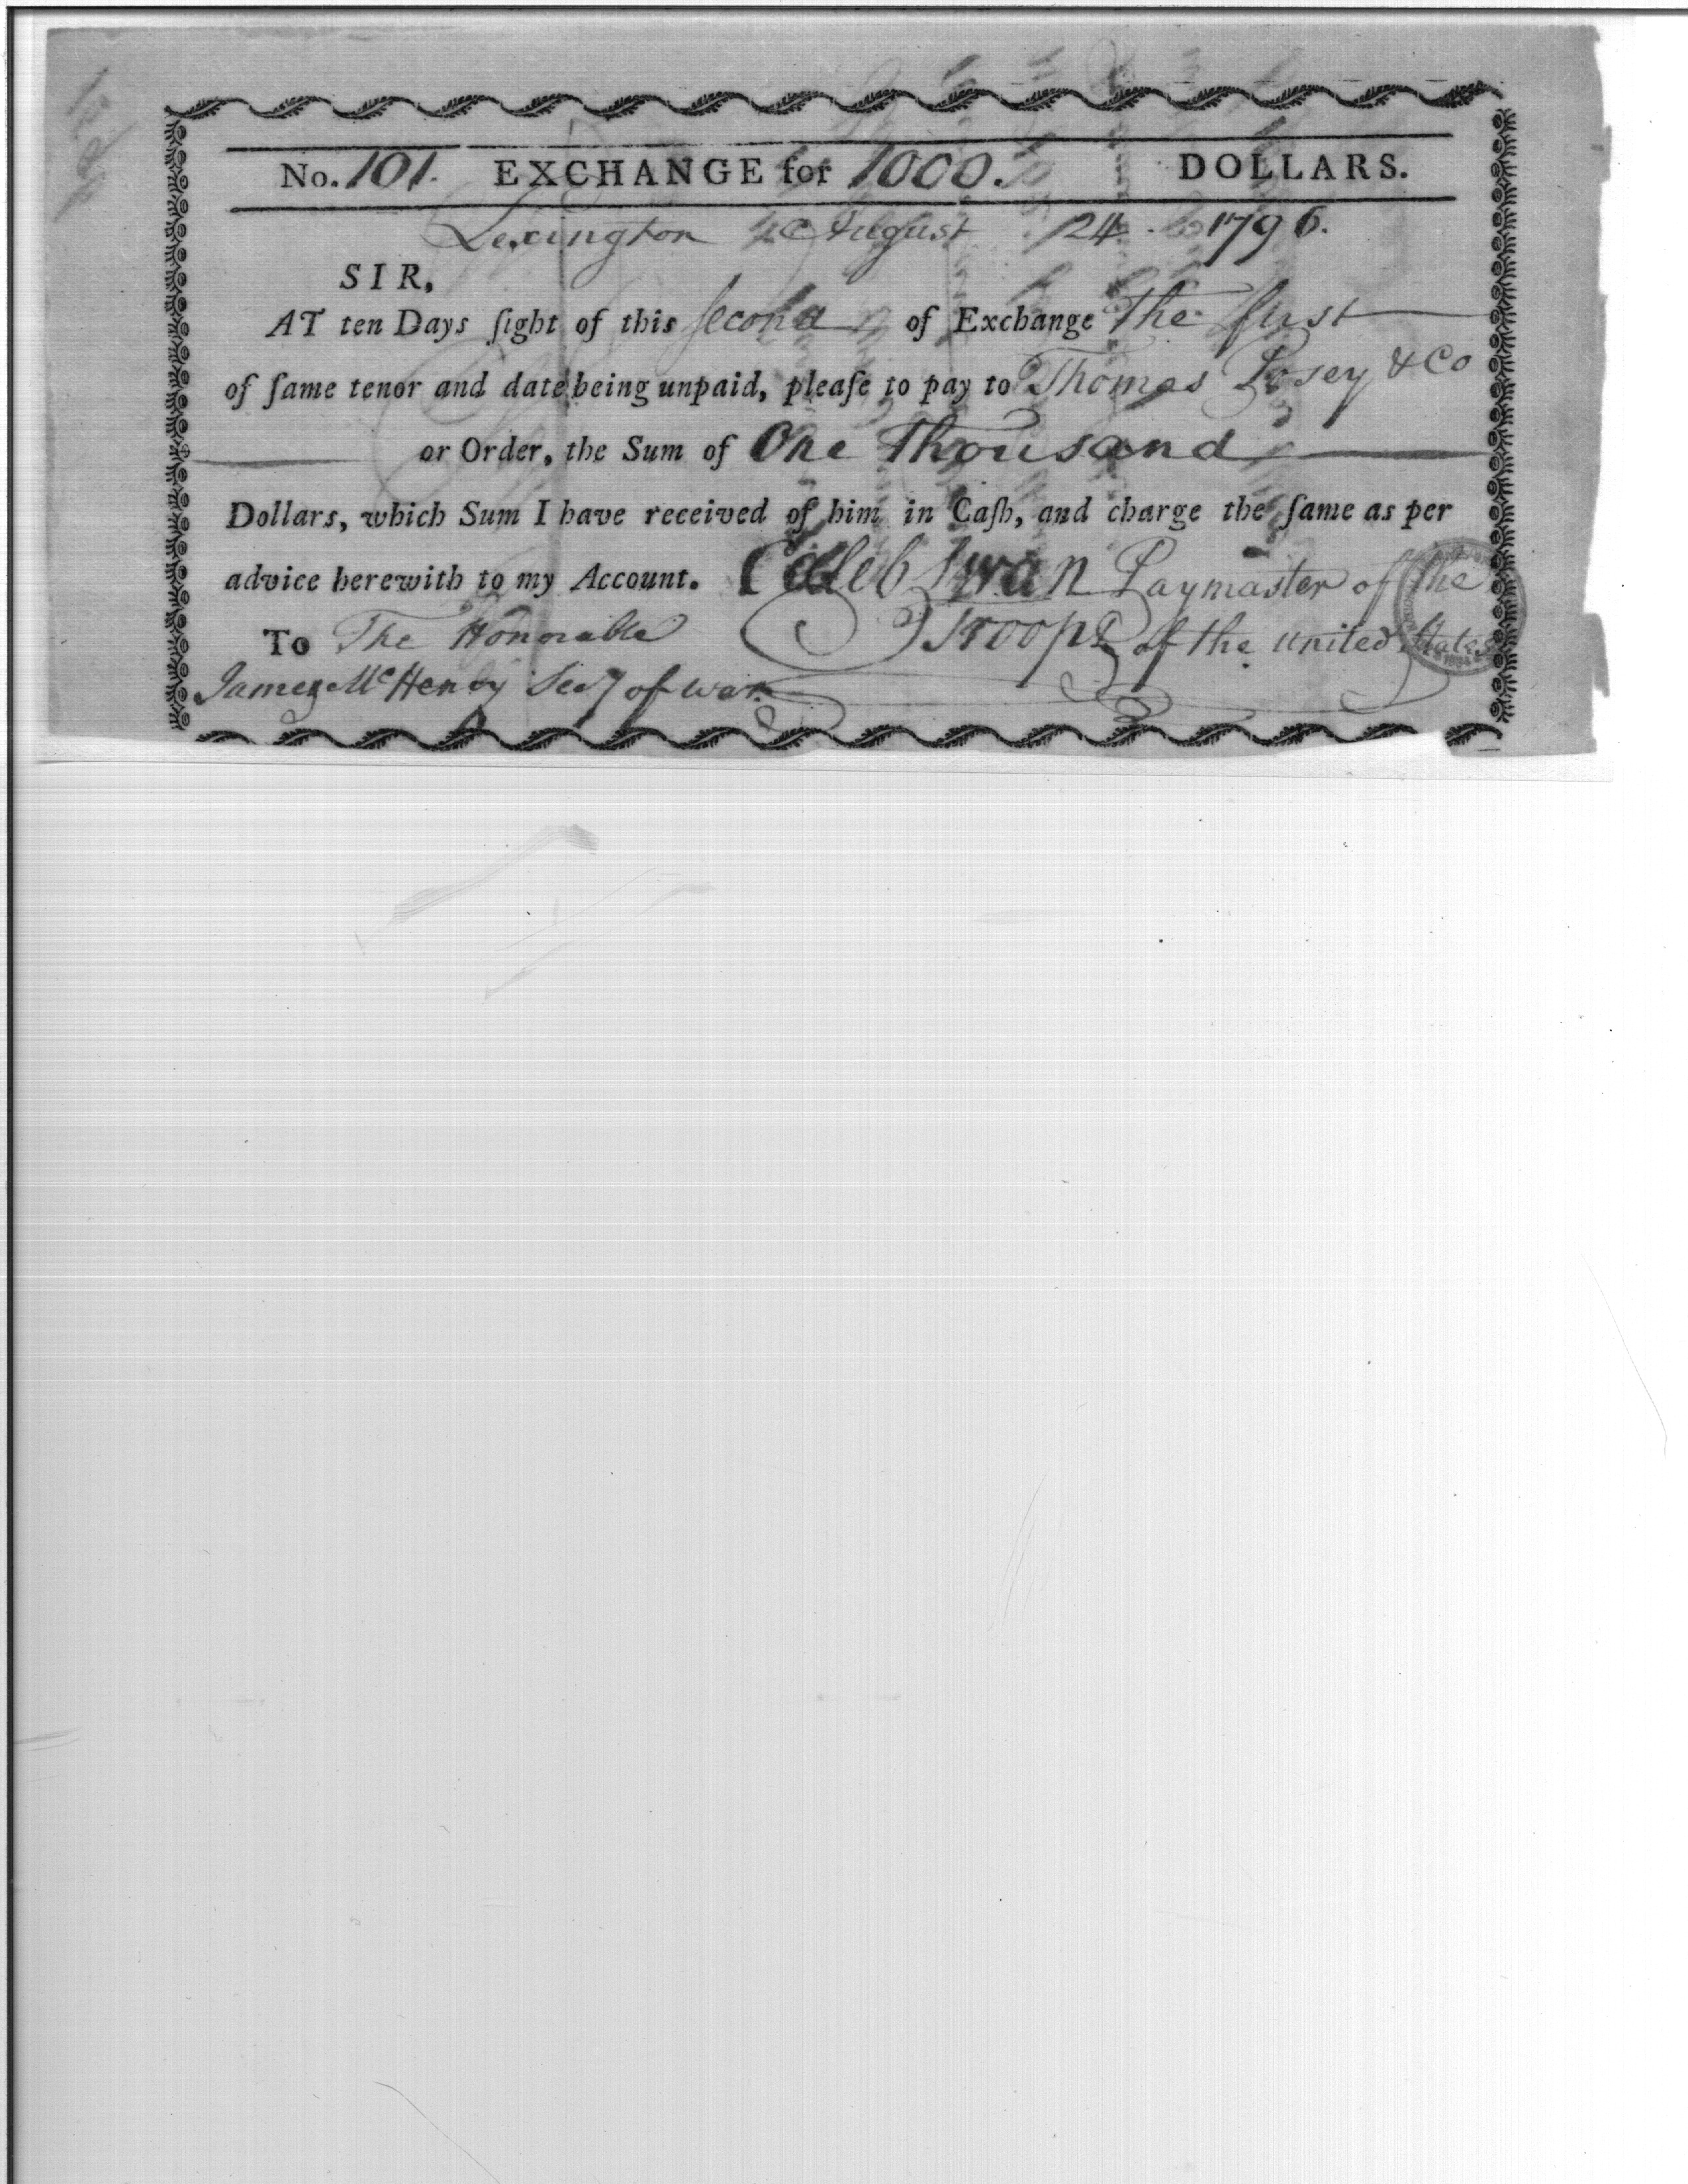 No. 101. EXCHANGE for 1000. DOLLARS.
Lexington August 24. 1796.
SIR,
AT ten Days ſight of this ſecond of Exchange The first
of ſame tenor and date being unpaid, pleaſe to pay to Thomas Posey & Co
or Order, the Sum of One Thousand
Dollars, which Sum I have received of him in Caſh, and charge the ſame as per
advice herewith to my Account. Caleb Swan Paymaster of the
To The Honorable Troops of the united States
James McHenry Secy of war